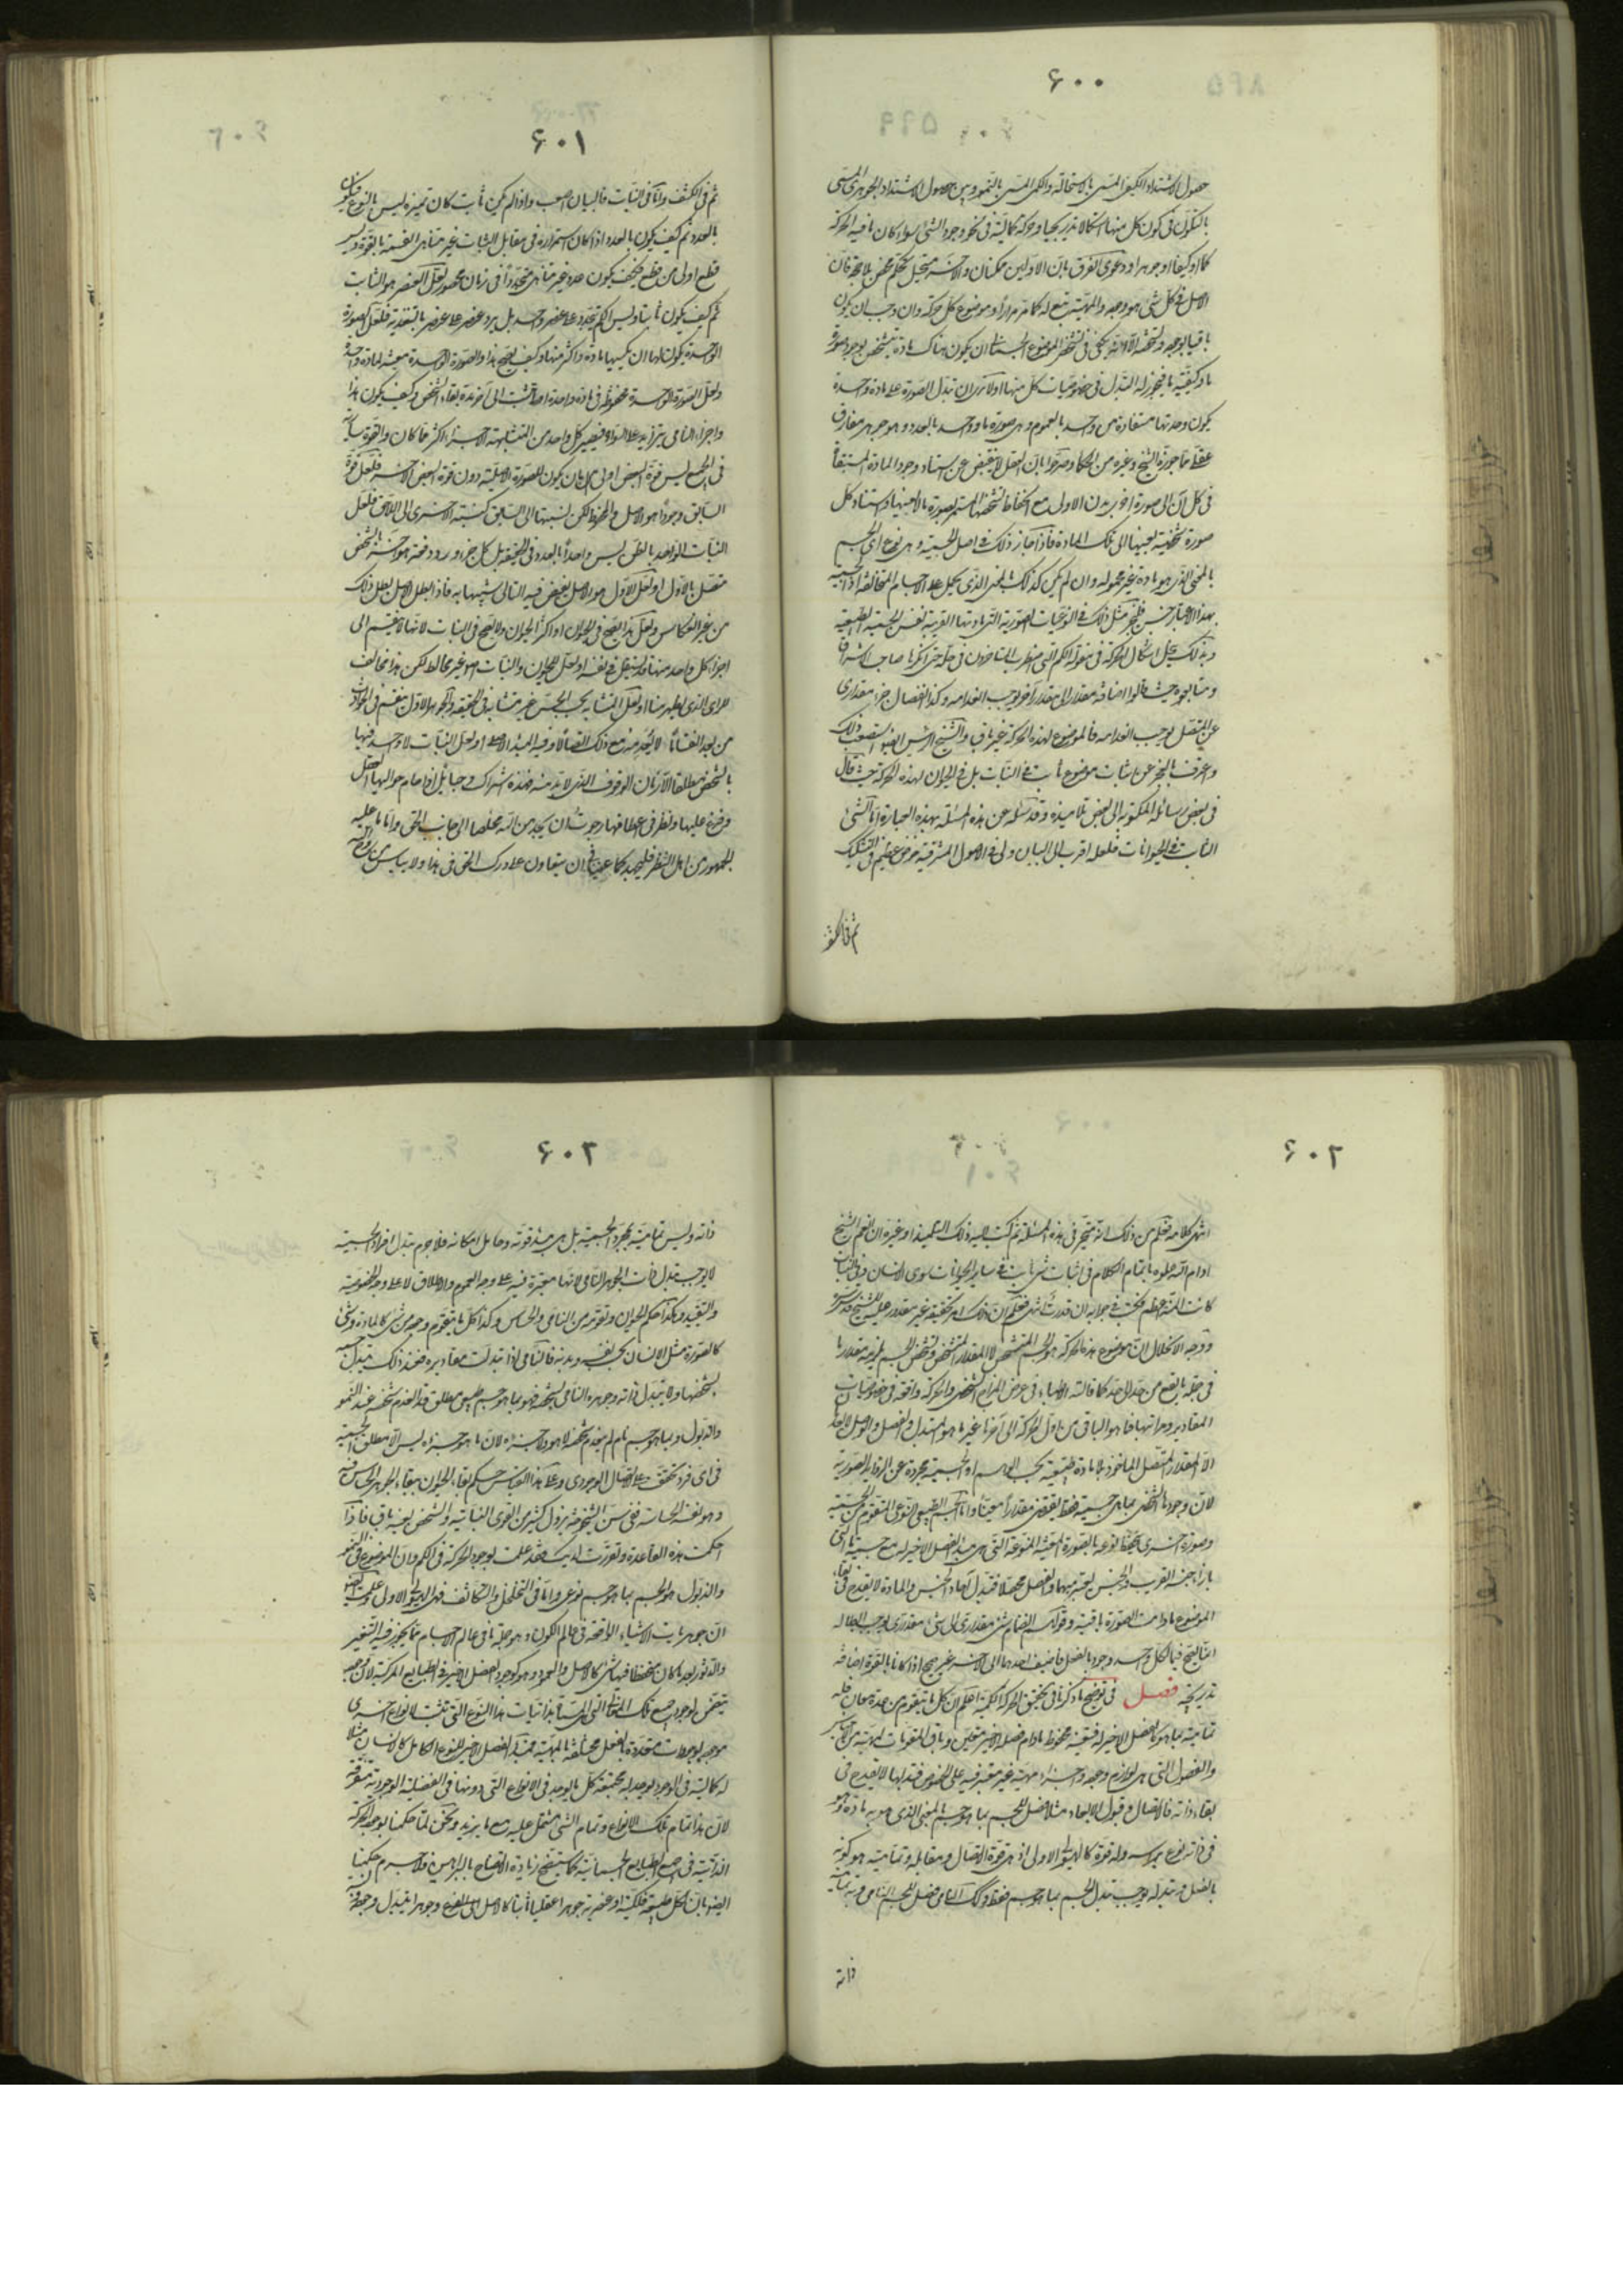 ۶۰۰
حصول الاشتداد الكيفي المسمى بالاستحالة والكمي المسمى بالنمو وبين حصول الاشتداد الجوهري المسمى
بالتكون في كون كل منها استكمالا تدريجيا وحركة كمالية في نحو وجود الشئ سواء كان ما فيه الحركة
كما او كيفا او جوهرا ودعوى الفرق بان الاولين ممكنان والاخير مستحيل تحكم محض بلا حجة فان
الاصل في كل شئ هو وجوده والمهية تبع له كما مر مرارا وموضوع كل حركة وان وجب ان يكون
باقيا بوجوده وتشخصه الا انه يكفي في تشخص الموضوع الجسماني ان يكون هناك مادة تتشخص بوجود صورة
ما وكيفية ما فيجوز له التبدل في خصوصيات كل منها اولا ترى ان تبدل الصورة على مادة واحدة
يكون وحدتها مستفادة من واحد بالعموم وهي صورة ما وواحد بالعدد وهو جوهر مفارق
عقلي مما جوزه الشيخ وغيره من الحكماء وصرحوا بان العقل لا ينقبض عن استناد وجود المادة المستبقاة
في كل آن الى صورة اخرى بدل الاولى مع انحفاظ تشخصها المستمر بصورة ما لا بعينها واستناد كل
صورة شخصية بعينها الى تلك المادة فاذا جاز ذلك في اصل الجسمية وهي نوع اي الجسم
بالمعنى الذي هو مادة غير محمولة وان لم يكن كذلك بالمعنى الذي يحمل على الاجسام المتخالفة اذ الجسمية
بهذا الاعتبار جنس فليجز مثل ذلك في النوعيات الصورية التي مادتها القريبة نفس الجسمية الطبيعية
وبذلك ينحل اشكال الحركة في مقولة الكم التي اضطرب المتأخرون في حله حتى انكرها صاحب الاشراق
ومتابعوه حيث قالوا اضافة مقدار الى مقدار آخر يوجب انعدامه وكذا انفصال جزء مقداري
عن المتصل يوجب انعدامه فالموضوع لهذه الحركة غير باق والشيخ الرئيس ايضا استصعب ذلك
واعترف بالعجز عن اثبات موضوع ثابت في النبات بل في الحيوان لهذه الحركة حيث قال
في بعض رسائله المكتوبة الى بعض تلاميذه وقد سأله عن هذه المسئلة بهذه العبارة اما الشئ
الثابت في الحيوانات فلعله اقرب الى البيان ولي في الاصول المشرقية خوض عظيم في التشكيك
ثم في الكشف
۶۰۱
ثم في الكشف واما في النبات فالبيان اصعب واذا لم يكن ثابت كان تميزه ليس بالنوع فيكون
بالعدد ثم كيف يكون بالعدد اذا كان استمراره في مقابل الثبات غير متناهي القسمة بالقوة وليس
قطع اولى من قطع فكيف يكون عدد غير متناه متجددا في زمان محصور لعل العنصر هو الثابت
ثم كيف يكون ثابتا وليس الكم يتجدد على عنصر واحد بل يرد عنصر على عنصر بالتغذية فلعل الصورة
الواحدة يكون لها ان يكسيها مادة واكثر منها وكيف يصح هذا والصورة الواحدة معينة لمادة واحدة
ولعل الصورة الواحدة محفوظة في مادة واحدة اولى تثبت الى آخر مدة بقاء الشخص وكيف يكون هذا
واجزاء النامي يتزايد على السواء فيصير كل واحد من المتشابهة الاجزاء اكثر مما كان والقوة سارية
في الجميع ليس قوة البعض اولى من ان يكون للصورة الاصلية دون قوة البعض الاخر فلعل قوة
السابق وجودا هو الاصل والمحفوظ لكن نسبتها الى السابق كنسبة الاخرى الى اللاحق فلعل
النبات الواحد بالظن ليس واحدا بالعدد في الحقيقة بل كل جزء ورد دفعة هو آخر بالشخص
متصل بالاول او لعل الاول هو الاصل يفيض فيه التالي شبيها به فاذا بطل الاصل بطل ذلك
من غير انعكاس ولعل هذا يصح في الحيوان او اكثر الحيوان ولا يصح في النبات لانها لا تنقسم الى
اجزاء كل واحد منها قد يستقل في نفسه او لعل للحيوان والنبات اصلا غير مخالط لكن هذا مخالف
للرأي الذي يظهر منا او لعل المتشابه بحسب الحس غير متشابه في الحقيقة والجوهر الاول ينقسم في الحوادث
من بعد انقساما لا يعدم منه مع ذلك اتصالا وفيه المبدء الاصلي او لعل النبات لا واحد فيها
بالشخص مطلقا الا زمان الوقوف الذي لا بد منه فهذه اشراك وحبائل اذا حام حواليها العقل
وفرع عليها ونظر في اعطافها رجوت ان يجد من الله مخلصا الى جانب الحق واما ما عليه
الجمهور من اهل النظر فليجتهد جماعتنا في ان يتعاون على درك الحق في هذا ولا ييأس من روح الله
۶۰۲
انتهى كلامه فعلم من ذلك انه متحير في هذه المسئلة ثم كتب اليه ذلك التلميذ او غيره ان انعم الشيخ
ادام الله علوه باتمام الكلام في اثبات شئ ثابت في سائر الحيوانات سوى الانسان وفي النبات
كانت المنة اعظم فكتب في جوابه ان قدرت انتهى فعلم ان ذلك امر تحقيقه غير مقدور عليه للشيخ قدس سره
ووجه الانحلال ان موضوع هذه الحركة هو الجسم المتشخص لا المقدار المتشخص وتشخص الجسم يلزمه مقدار ما
في جملة ما يقع من حد الى حد كما قالته الاطباء في عرض المزاج الشخصي والحركة واقعة في خصوصيات
المقادير ومراتبها فما هو الباقي من اول الحركة الى آخرها غير ما هو المتبدل والفصل والوصل لا يعدمان
الا المقدار المتصل المأخوذ بلا مادة طبيعية بحسب الوهم او الجسمية مجردة عن الزوايد الصورية
لان وجودها الشخصي بما هي جسمية فقط يقتضي مقدارا معينا واما الجسم الطبيعي النوعي المتقوم من الجسمية
وصورة اخرى ينحفظ نوعه بالصورة المعينة المنوعة التي هي مبدأ الفصل الاخير له مع جسمية ما التي
بازاء جنسه القريب والجنس يعتبر مبهما والفصل محصلا فتبدل آحاد الجنس والمادة لا يقدح في بقاء
الموضوع ما دامت الصورة باقية وقولك انضمام شئ مقداري الى شئ مقداري يوجب ابطاله
انما يصح فيما لكل واحد وجود بالفعل فاضيف احدهما الى الاخر غير صحيح اذا كانا بالقوة اضافة
تدريجية فصل في توضيح ما ذكرناه في تحقيق الحركة الكمية اعلم ان كل ما يتقوم من عدة معان فله
تمامية بما هو كالفصل الاخير له فتعينه محفوظ ما دام فصله الاخير متعين وباقي المقومات لمهيته من الاجناس
والفصول التي هي لوازم وجوده واجزاء مهيته غير معتبر فيه على الخصوص فتبدلها لا يقدح في
بقاء ذاته فالاتصال في قبول الابعاد مثلا فصل للجسم بما هو جسم بالمعنى الذي هو به مادة وهو
في ذاته نوع برأسه وله قوة كالهيولى الاولى اذ هي قوة الاتصال ومقابله وتماميته هو كونه
بالفصل وتبدله يوجب تبدل الجسم بما هو جسم فقط وكذلك النامي فصل للجسم النامي وبه تمامية
ذاته
۶۰۲
ذاته وليس تماميته بمجرد الجسمية بل هي مبدأ قوته وحامل امكانه فلا جرم تبدل افراد الجسمية
لا يوجب تبدل ذات الجوهر النامي لانها معتبرة فيه على وجه العموم والاطلاق لا على وجه الخصوصية
والتقييد وهكذا حكم الحيوان وتقومه من النامي والحساس وكذا كل ما يتقوم وجوده من شئ كالمادة وشئ
كالصورة مثل الانسان بحسب نفسه وبدنه فالنامي اذا تبدلت مقاديره فعند ذلك يتبدل جسميته
بشخصها ولا يتبدل ذاته وجوهره النامي بشخصه فهو بما هو جسم طبيعي مطلق قد انعدم شخصه عند النمو
والذبول وبما هو جسم نام لم ينعدم بشخصه لا هو ولا جزءه لان ما هو جزءه ليس الا مطلق الجسمية
في اي فرد تحقق على الاتصال الوجودي وعلى هذا القياس حكم بقاء الحيوان ببقاء الجوهر الحساس فيه
وهو نفسه الحساسة ففي سن الشيخوخة يزول كثير من القوى النباتية والشخص بعينه باق فاذا
احكمت هذه القاعدة وتقررت لديك فقد علمت بوجود الحركة في الكم وان الموضوع في النمو
والذبول هو الجسم بما هو جسم نوعي واما في التخلخل والتكاثف فهي الهيولى الاولى وعلمت ايضا
ان جوهريات الاشياء الواقعة في عالم الكون وهو جملة ما في عالم الاجسام مما يجوز فيه التغير
والدثور بعد ما كان منحفظا فيها شئ كالاصل والعمود وهو كوجود الفصل الاخير في الطبايع المركبة لان وجوده
يتضمن لوجود جميع تلك المعاني التي هي المسماة بذاتيات هذا النوع التي تثبت لانواع اخرى
موجودة بوجودات متعددة بالفعل مختلفة بالمهية فمبدأ الفصل الاخير للنوع الكامل كالانسان مثلا
له كمالية في الوجود يوجد له مجتمعة كل ما يوجد في الانواع التي دونها في الفضيلة الوجودية متفرقة
لان هذا تمام تلك الانواع وتمام الشئ مشتمل عليه مع ما يزيد ونحن لما حكمنا بوجود الحركة
الذاتية في جميع الطبايع الجسمانية كما سيتضح زيادة الايضاح بالبراهين فلا جرم حكمنا
ايضا بان لكل طبيعة فلكية او عنصرية جوهرا عقليا ثابتا كالاصل وجوهرا يتبدل وجوده